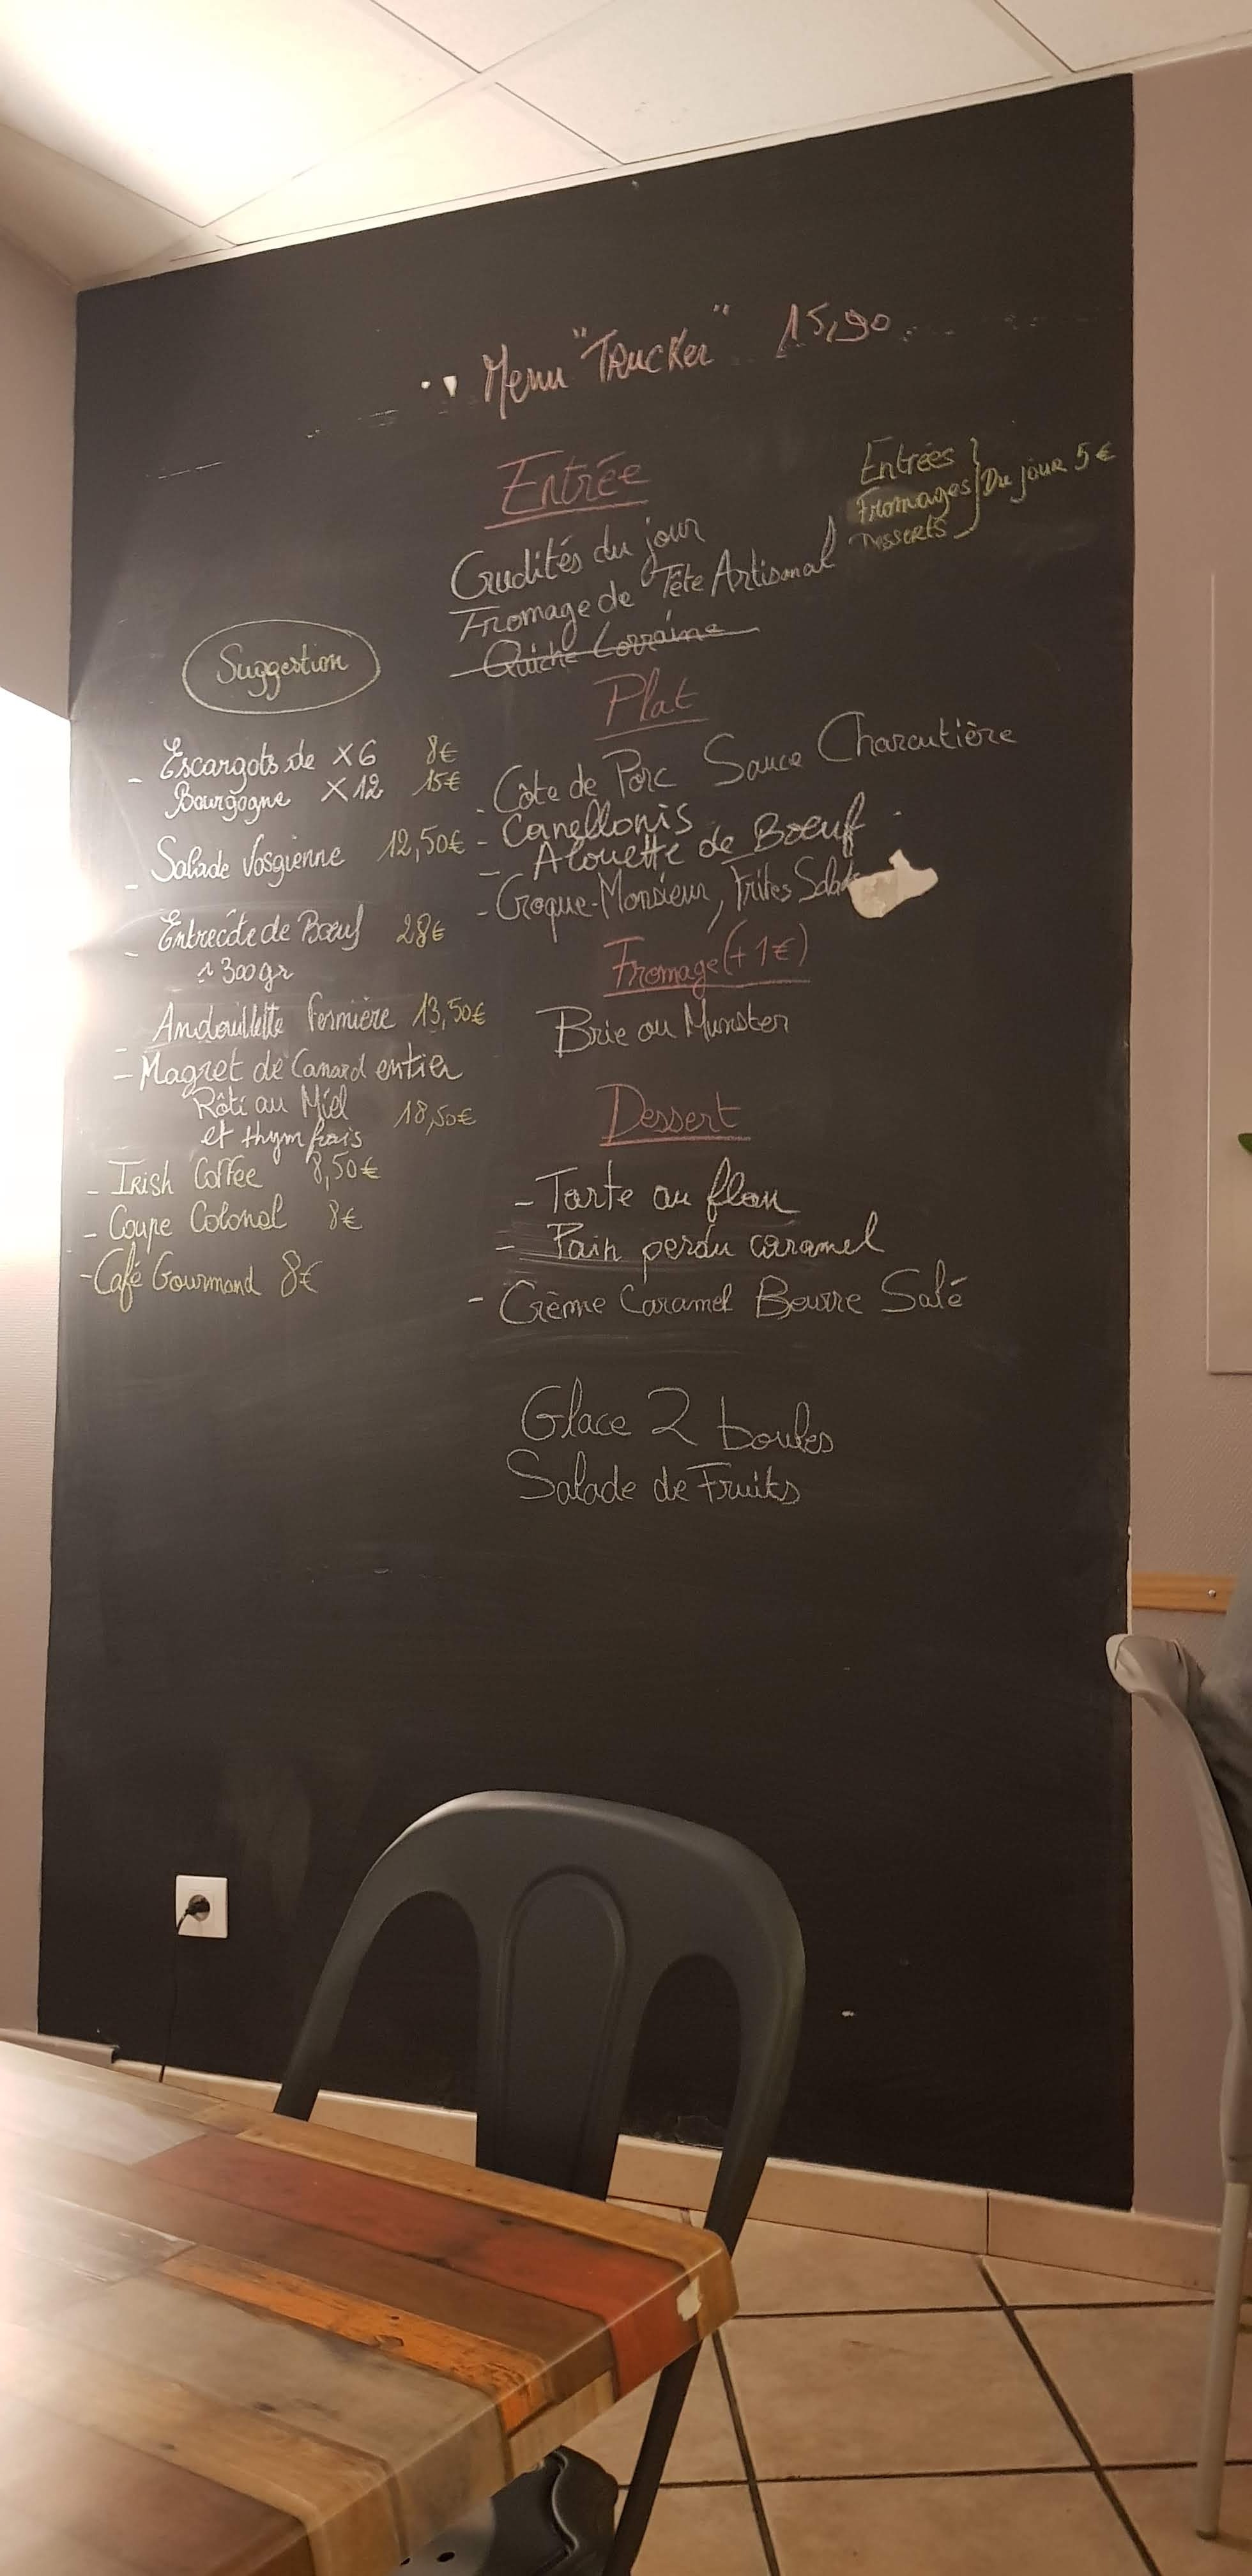 Menu "Trucker" 15,90
Entrée
Crudités du jour
Fromage de Tête Artisanal
Quiche Lorraine
Entrées
Fromages
Desserts
Du jour 5€
Plat
- Côte de Porc Sauce Charcutière
- Canellonis
- Alouette de Bœuf
- Croque-Monsieur, Frites Salade
Fromage (+1€)
Brie ou Munster
Dessert
- Tarte au flan
- Pain perdu caramel
- Crème Caramel Beurre Salé
Glace 2 boules
Salade de Fruits
Suggestion
- Escargots de X6 8€
Bourgogne X12 15€
- Salade Vosgienne 12,50€
- Entrecôte de Bœuf 28€
300gr
- Andouillette Fermière 13,50€
- Magret de Canard entier
Rôti au Miel 18,50€
et thym frais
- Irish Coffee 8,50€
- Coupe Colonel 8€
- Café Gourmand 8€